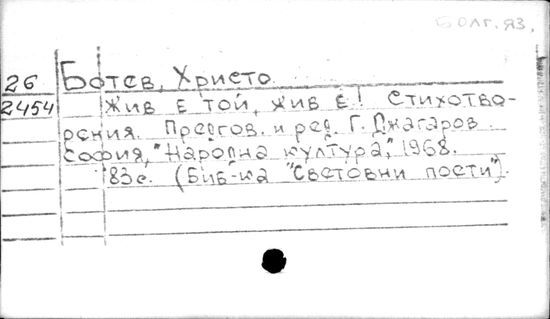 Болг. яз.
26 Ботев, Христо
2454 Жив е той, жив е! Стихотво-
рения. Предгов. и ред. Г. Джагаров.
София, "Народна култура", 1968.
83с. (Биб-ка "Световни поети").